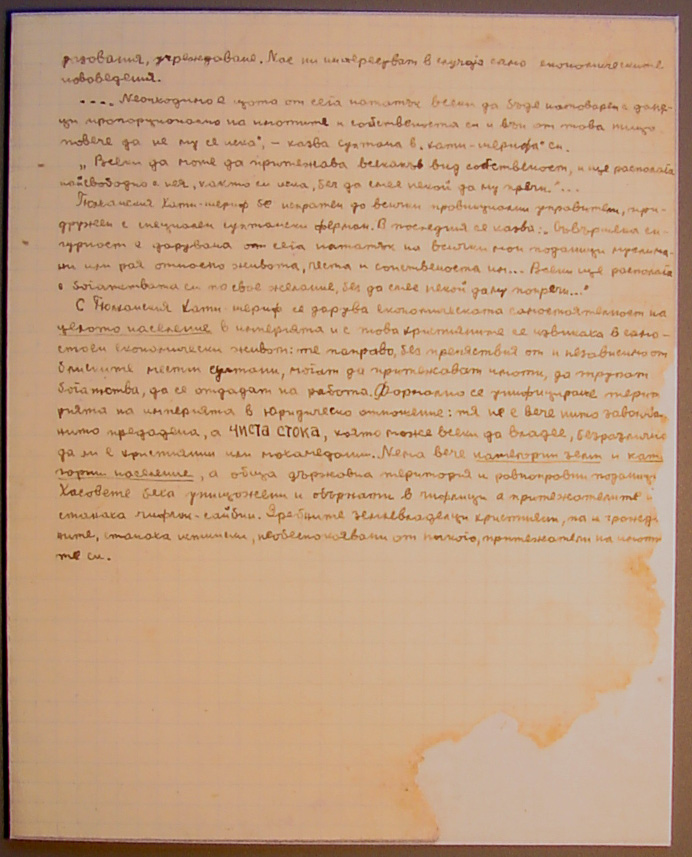 разования, учреждаване. Нас ни интересуват в случая само економическите
нововедения.
.... Необходимо е щото от сега нататък всеки да бъде натоварен с данъ-
ци пропорционално на имотите и собствеността си и вън от това нищо
повече да не му се иска", – казва султана в „хати-шерифа" си.
„Всеки да може да притежава всекакъв вид собственост, и ще располага
найсвободно с нея, както си иска, без да смее некой да му пречи."...
Гюлханския Хати-шериф бе испратен до всички провинциални управители, при-
дружен с специален султански ферман. В последния се казва: „Съвършена си-
гурност е дарувана от сега нататък на всички мои поданици мусулма-
ни или рая относно живота, честта и собствеността им... Всеки ще располага
с богатствата си по свое желание, без да смее некой да му попречи..."
С Гюлханския Хати-шериф се дарува економическата самостоятелност на
целото население в империята и с това християните се извикаха в само-
стоен економически живот: те направо, без препятствия от и независимо от
близките местни султани, могат да притежават имоти, да трупат
богатства, да се отдадат на работа. Формално се унифицираше терит
рията на империята в юридическо отношение: тя не е вече нито завоюва
нито предадена, а ЧИСТА СТОКА, която може всеки да владее, безразлично
да ли е християнин или мохамеданин. Нема вече категории земи и кат
гории население, а обща държавна територия и равноправни поданици
Хасовете беха унищожени и обърнати в чифлици а притежателите и
станаха чифлик-сайбии. Дребните земевладелци християни, па и гражда
ните, станаха истински, необеспокоявани от никого, притежатели на имоти
те си.